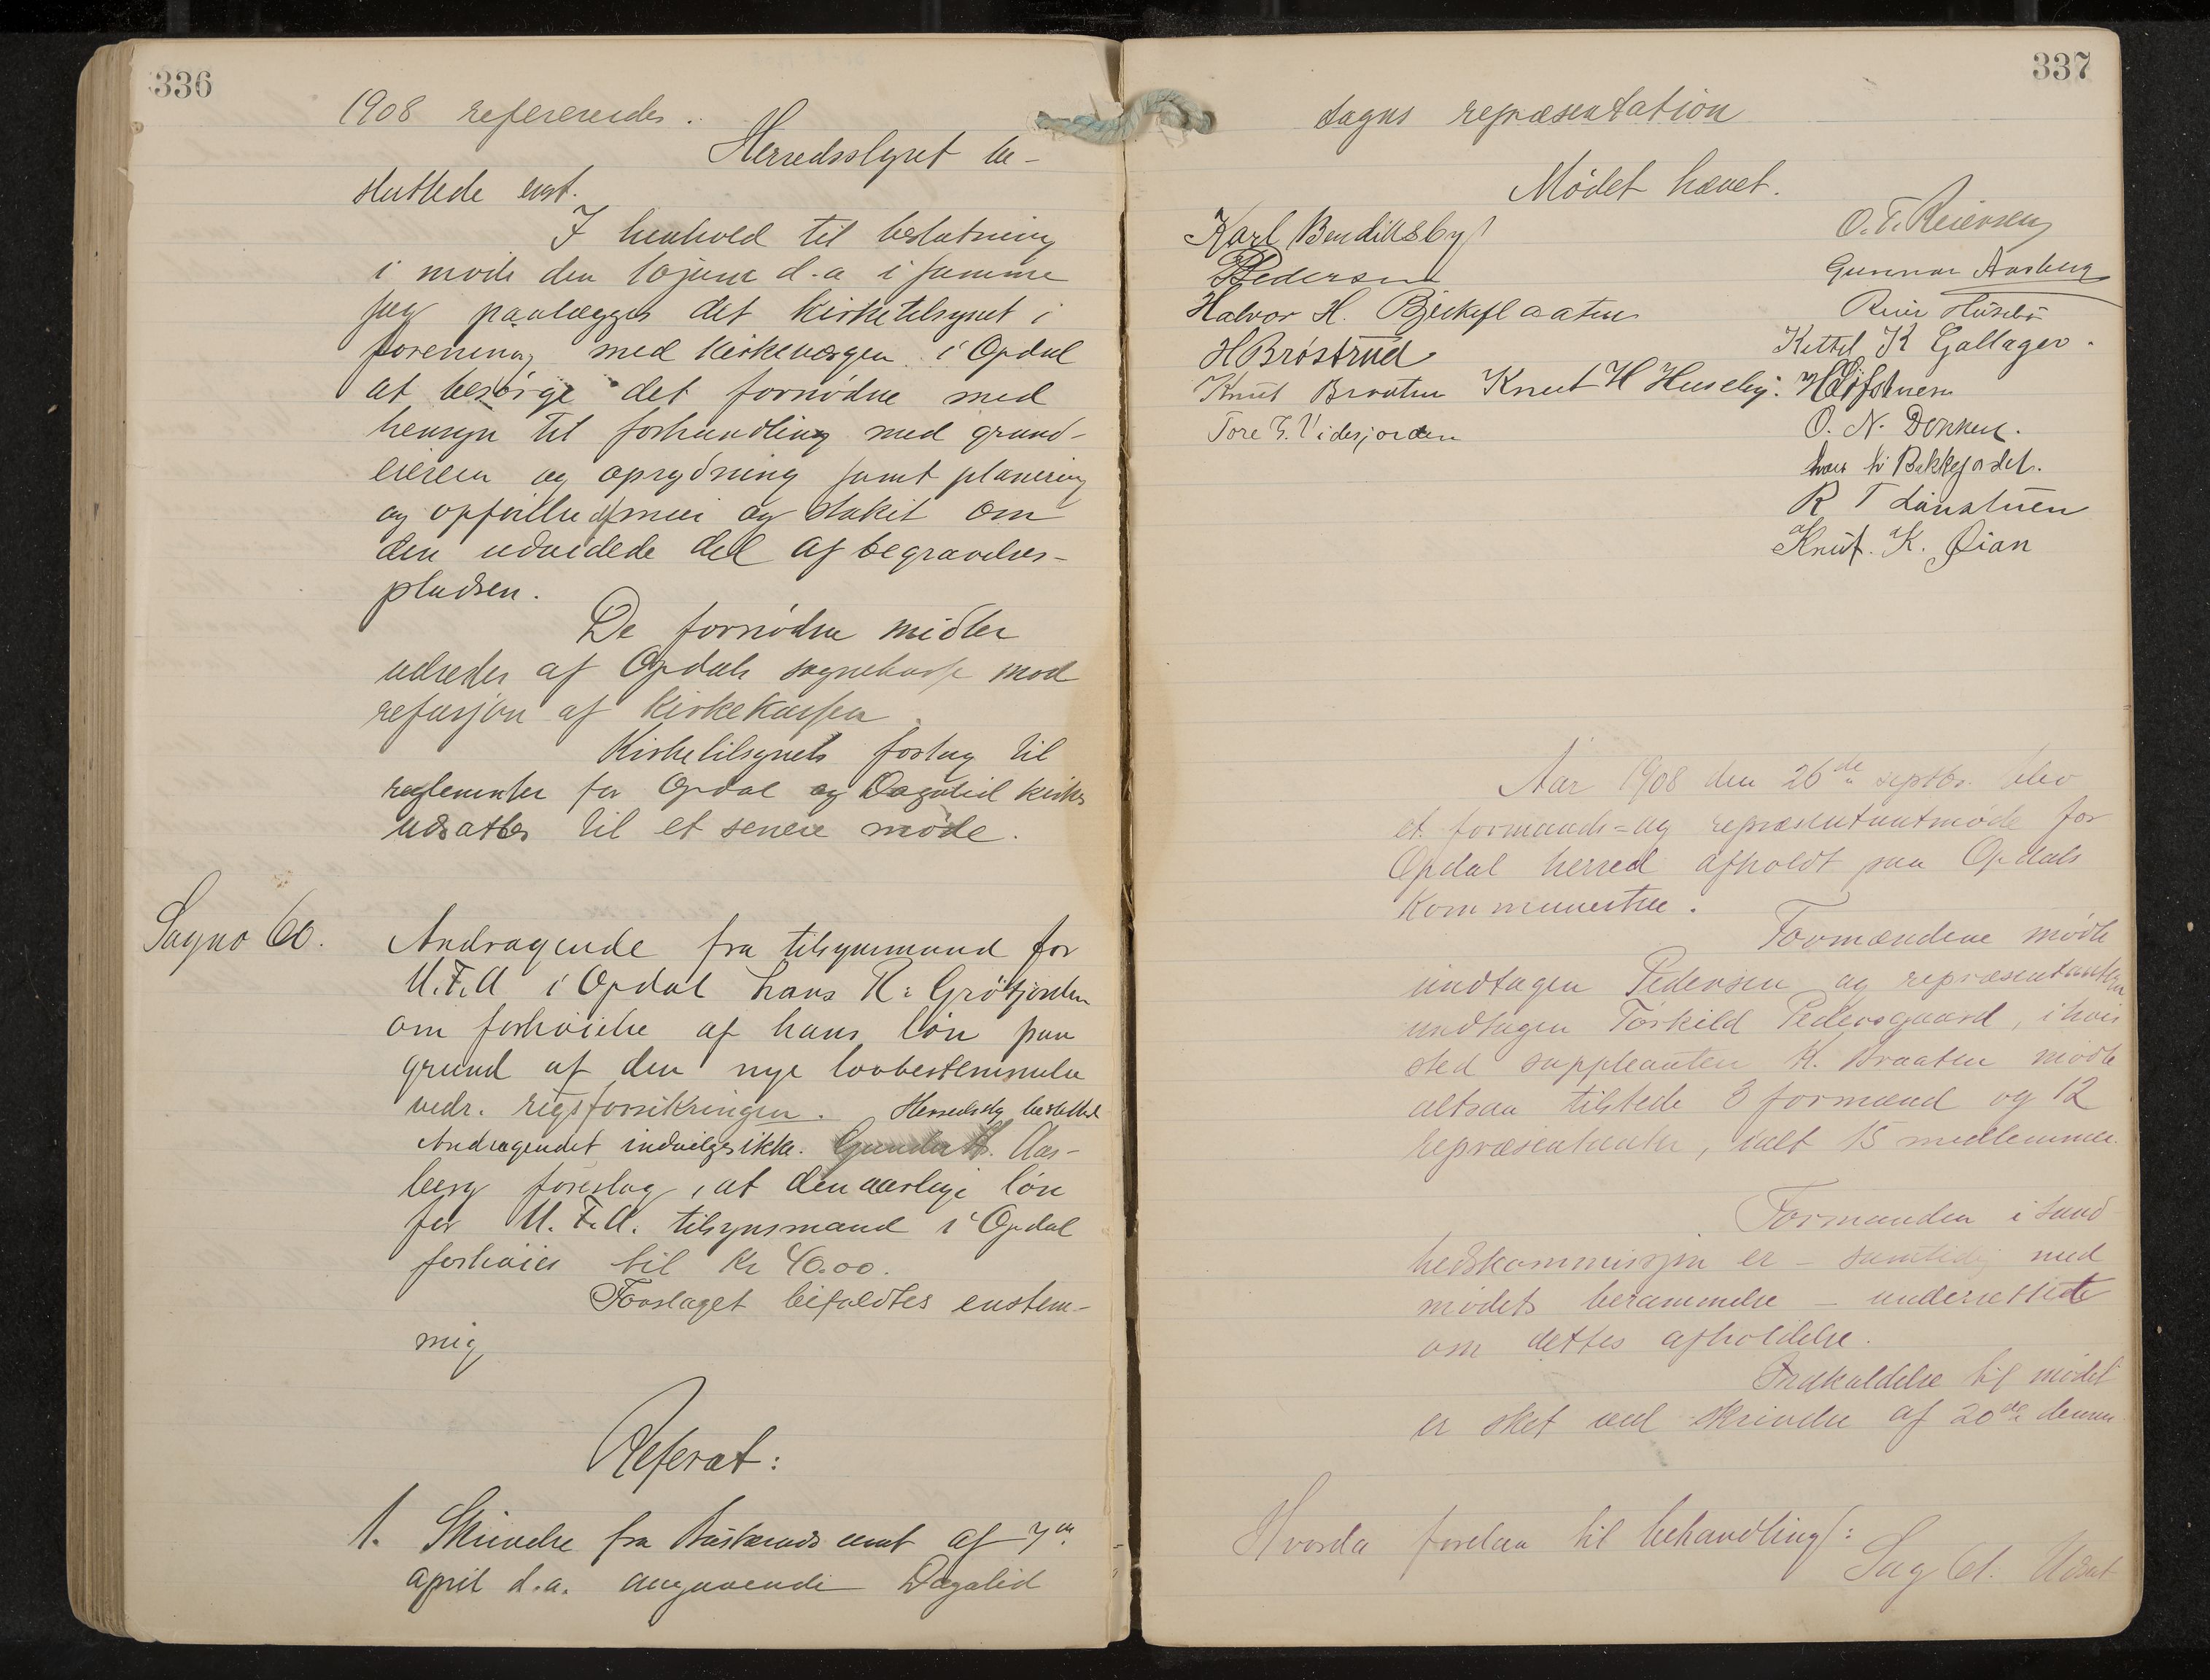 336
1908 refereredes.
Herredsstyret be-
sluttede enst.
I henhold til beslutning
i møde den 10 juni d.a i samme
sag paalægges det kirketilsynet i
forening med kirkeværgen i Opdal
at besørge det fornødne med
hensyn til forhandling med grund-
eieren og oprydning samt planering
og opførelse af mur og stakit om
den udvidede del af begravelses-
pladsen.
De fornødne midler
udredes af Opdals sognekasse mod
refusjon af kirkekassen.
Kirketilsynets forslag til
reglementer for Opdal og Dagalid kirker
udsattes til et senere møde.
Sagno 60.
Andragende fra tilsynsmand for
U.F.A i Opdal Hans R. Grøtjorden
om forhøielse af hans løn paa
grund af den nye lovbestemmelse
vedr. rigsforsikringen. Herredsst. besluttet
Andragendet indvilges ikke. Gunnar Aas-
berg foreslog, at den aarlige løn
for U.F.A. tilsynsmand i Opdal
forhøies til Kr 40.00.
Forslaget bifaldtes enstem-
mig
Referat:
1. Skrivelse fra Buskeruds amt af 7de
april d.a. angaaende Dagalid
337
sogns repræsentation
Mødet hævet.
Karl Bendiksby
Pedersen
Halvor H. Bjerkeflaaten
H Brøstrud
Knut Braaten Knut H Huseby.
Tore G. Videsjorden
O. T. Reiersen
Gunnar Aasberg
Reier Husebø
Kittel K Gallager.
H Løfstuen
O. N. Donken.
Hans H Bekkejordet.
R T Lànstuen
Knut. K. Øian
Aar 1908 den 26de septbr. blev
et formands- og repræsentantmøde for
Opdal herred afholdt paa Opdals
Kommunestue.
Formændene mødte
undtagen Pedersen og repræsentanterne
undtagen Torkild Pedersgaard, i hvis
sted suppleanten K. Braaten mødte
altsaa tilstede 3 formænd og 12
repræsentanter, ialt 15 medlemmer.
Formanden i sund
hedskommisjon er – samtidig med
mødets berammelse – underrettet
om dettes afholdelse.
Indkaldelse til mødet
er sket ved skrivelse af 20de dennes
Hvorda forelaa til behandling:
Sag 61. Udsat